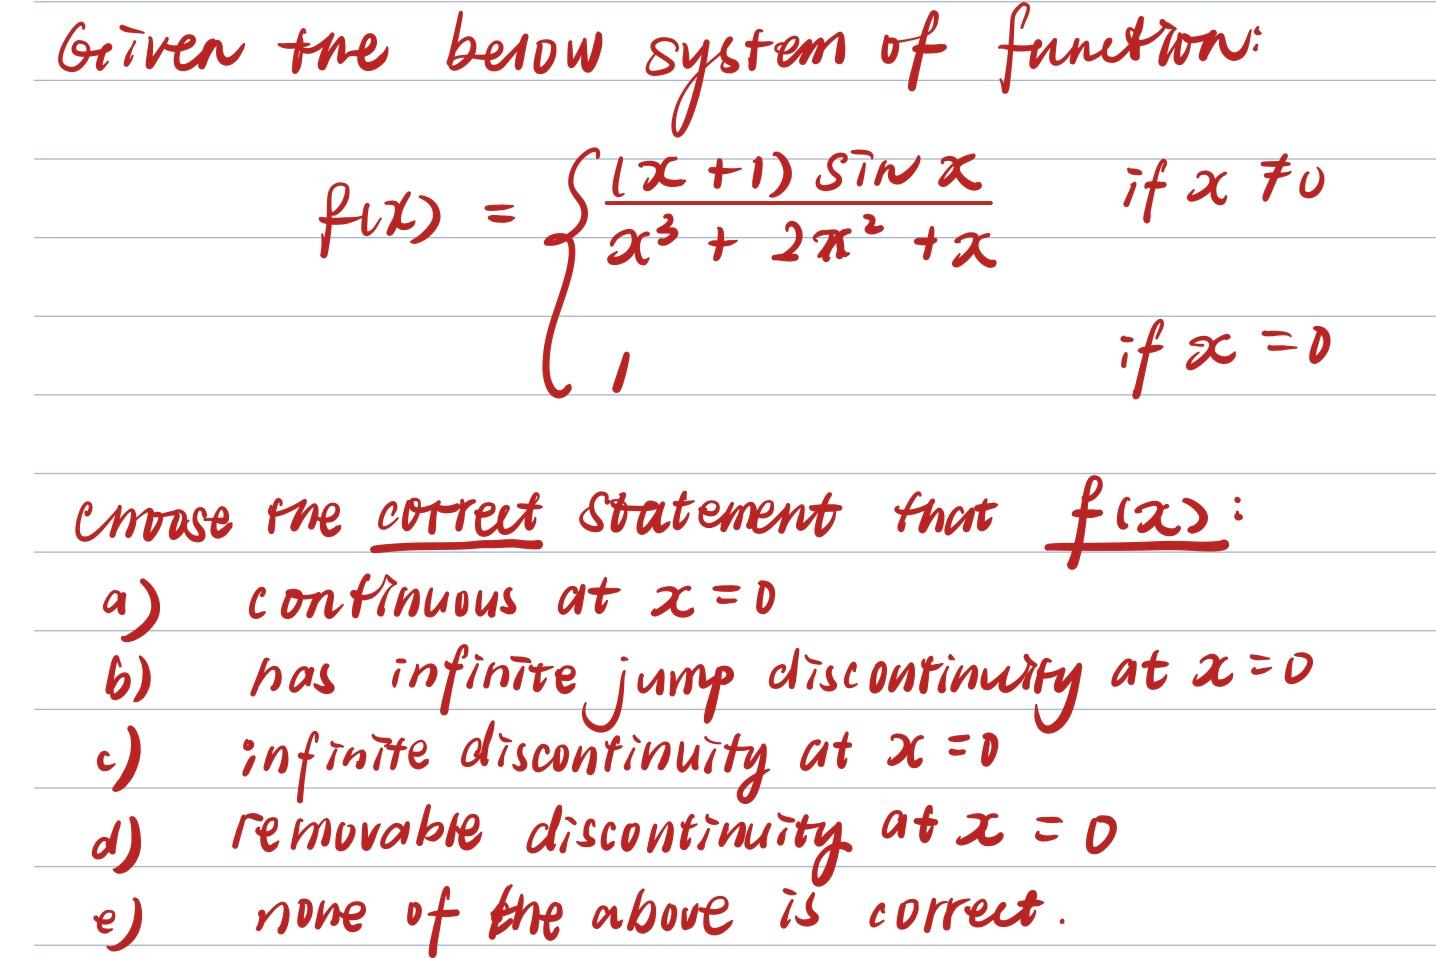 Given the below system of function:
f(x) = { (x+1) sin x / x³ + 2x² + x if x ≠ 0
1 if x = 0
choose the correct statement that f(x):
a) continuous at x = 0
b) has infinite jump discontinuity at x = 0
c) infinite discontinuity at x = 0
d) removable discontinuity at x = 0
e) none of the above is correct.